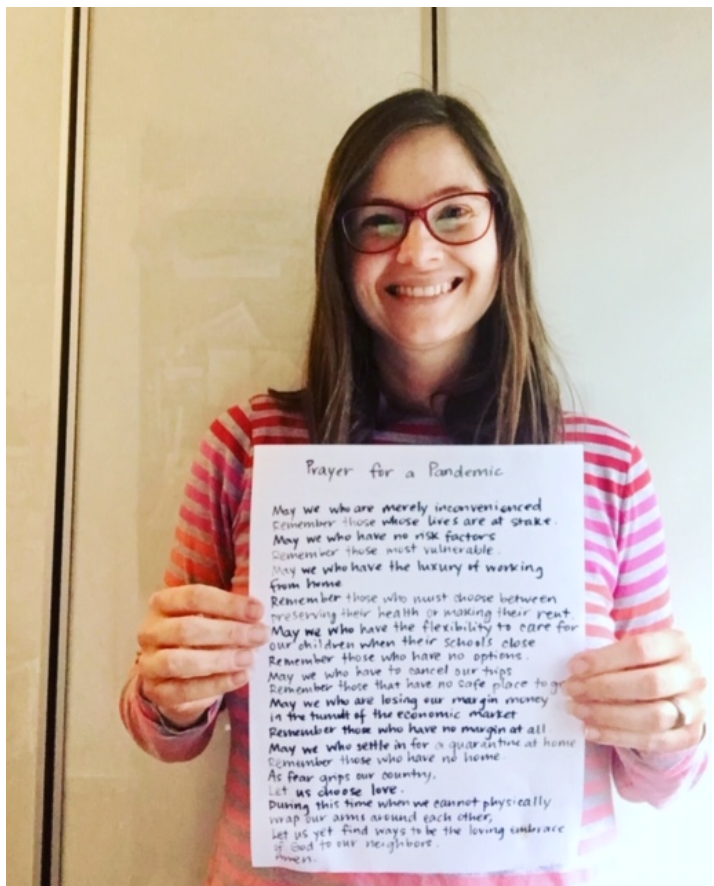 Prayer for a Pandemic
May we who are merely inconvenienced
Remember those whose lives are at stake.
May we who have no risk factors
Remember those most vulnerable.
May we who have the luxury of working
from home
Remember those who must choose between
preserving their health or making their rent
May we who have the flexibility to care for
our children when their schools close
Remember those who have no options.
May we who have to cancel our trips
Remember those that have no safe place to go
May we who are losing our margin money
in the tumult of the economic market
Remember those who have no margin at all
May we who settle in for a quarantine at home
Remember those who have no home.
As fear grips our country,
Let us choose love.
During this time when we cannot physically
wrap our arms around each other,
Let us yet find ways to be the loving embrace
of God to our neighbors.
Amen.